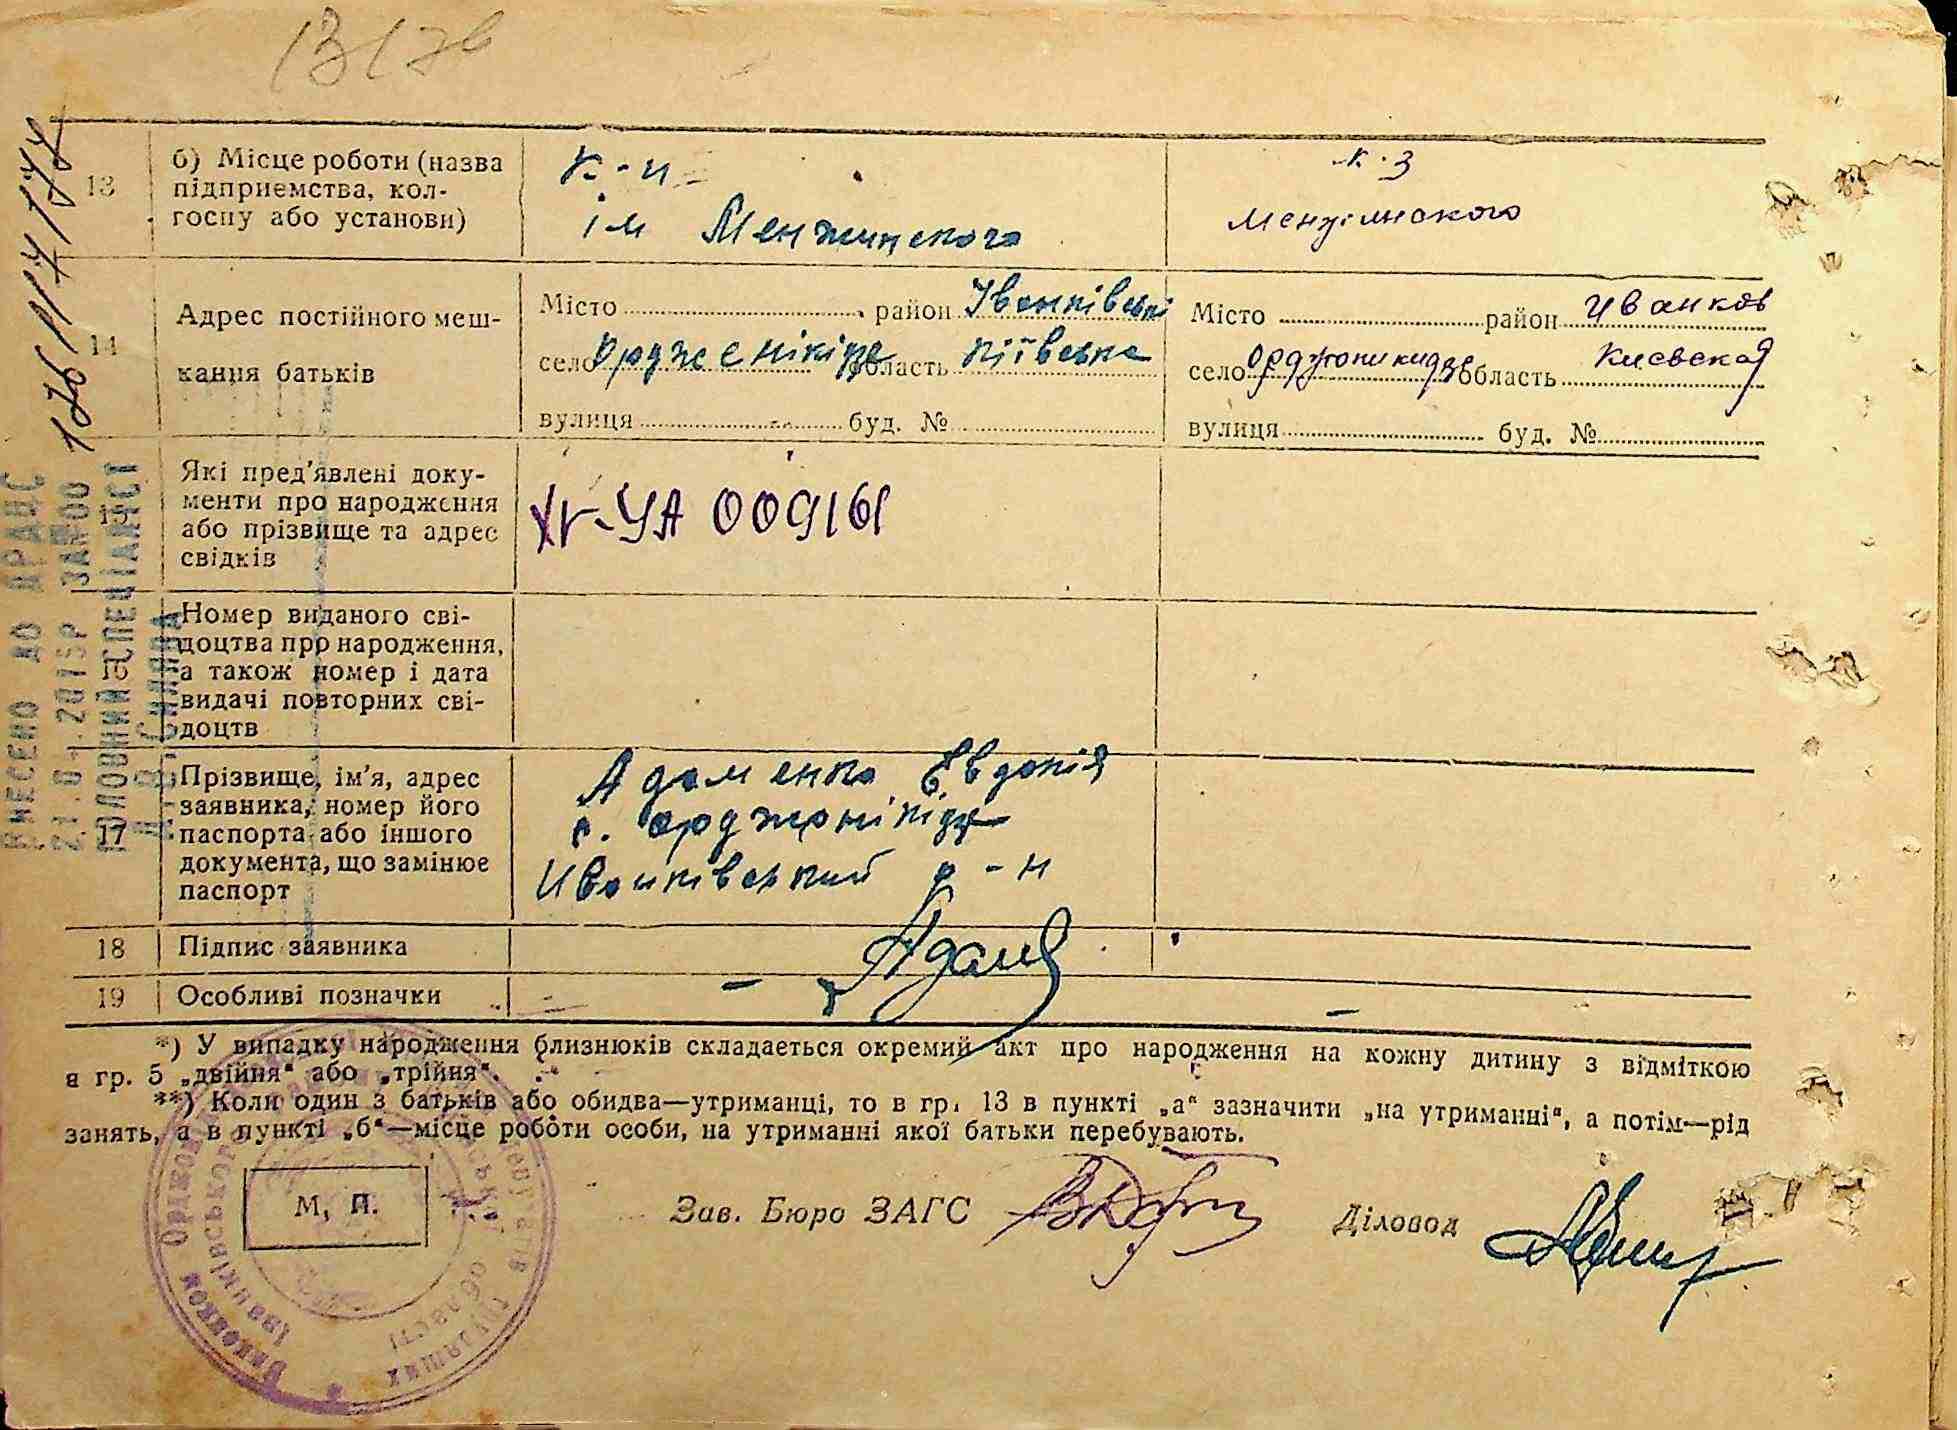 13 б) Місце роботи (назва
підприємства, кол-
госпу або установи)
к-п
ім Менжинского
к-з
Менжинского
14 Адрес постійного меш-
кання батьків
Місто район Іванківськ
село Орджєнікідзе область Київська
вулиця буд. №
Місто район Иванков
село Орджоникидзе область Киевская
вулиця буд. №
15 Які пред'явлені доку-
менти про народження
або прізвище та адрес
свідків
УА 009161
16 Номер виданого сві-
доцтва про народження,
а також номер і дата
видачі повторних сві-
доцтв
17 Прізвище, ім'я, адрес
заявника, номер його
паспорта або іншого
документа, що замінює
паспорт
Адаменко Евдокія
с. Орджонікідзе
Иванківський р-н
18 Підпис заявника
Адаме
19 Особливі позначки
*) У випадку народження близнюків складається окремий акт про народження на кожну дитину з відміткою
в гр. 5 „двійня“ або „трійня“.
**) Коли один з батьків або обидва—утриманці, то в гр. 13 в пункті „а“ зазначити „на утриманні“, а потім—рід
занять, а в пункті „б“—місце роботи особи, на утриманні якої батьки перебувають.
М, П.
Зав. Бюро ЗАГС
Діловод
ВНЕСЕНО ДО ДРАЦС
ГОЛОВНИЙ СПЕЦІАЛІСТ
Виконком
депутатів трудящих
області